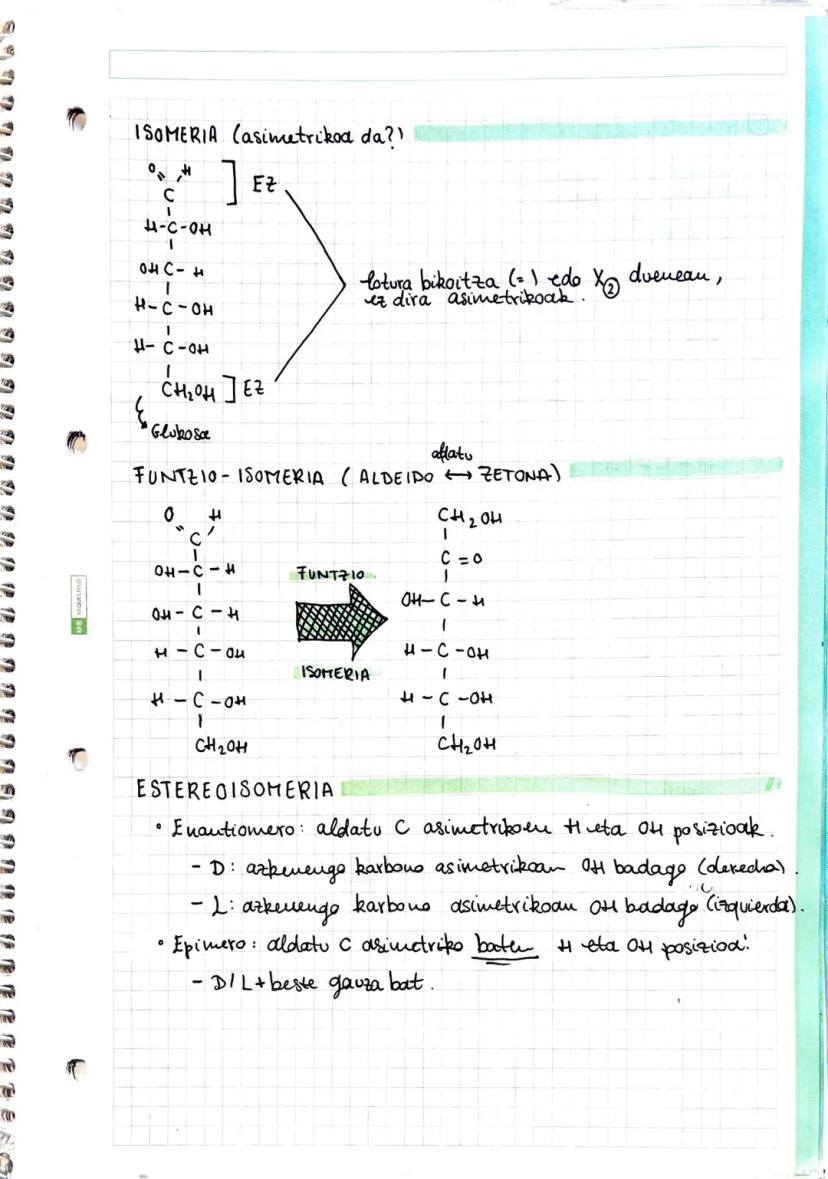 ISOMERIA (asimetrikoa da?)
O H ] EZ
C
H-C-OH
OH C-H
H-C-OH
H-C-OH
CH₂OH ] EZ
Glukosa
lotura bikoitza (=) edo X₂ dueneau,
ez dira asimetrikoak.
aldatu
FUNTZIO-ISOMERIA (ALDEIDO ↔ ZETONA)
O H
C
OH-C-H
OH-C-H
H-C-OH
H-C-OH
CH₂OH
FUNTZIO
ISOMERIA
CH₂OH
C=O
OH-C-H
H-C-OH
H-C-OH
CH₂OH
MIQUELRIUS
ESTEREOISOMERIA
• Enantiomero: aldatu C asimetrikoen H eta OH posizioak.
- D: azkenengo karbono asimetrikoan OH badago (derecha).
- L: azkenengo karbono asimetrikoan OH badago (izquierda).
• Epimero: aldatu C asimetriko baten H eta OH posizioa.
- D/L + beste gauza bat.